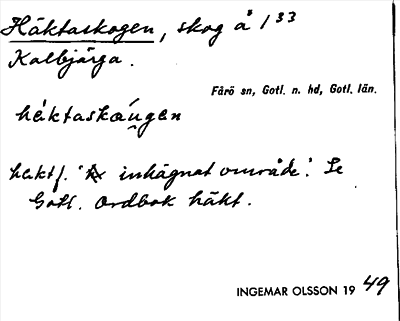 Häktaskogen, skog å 133
Kalbjärga.
Fårö sn, Gotl. n. hd, Gotl. län.
häktaskæu̯gen
häkt f. 'inhägnat område'. Se
Gotl. Ordbok häkt.
INGEMAR OLSSON 1949